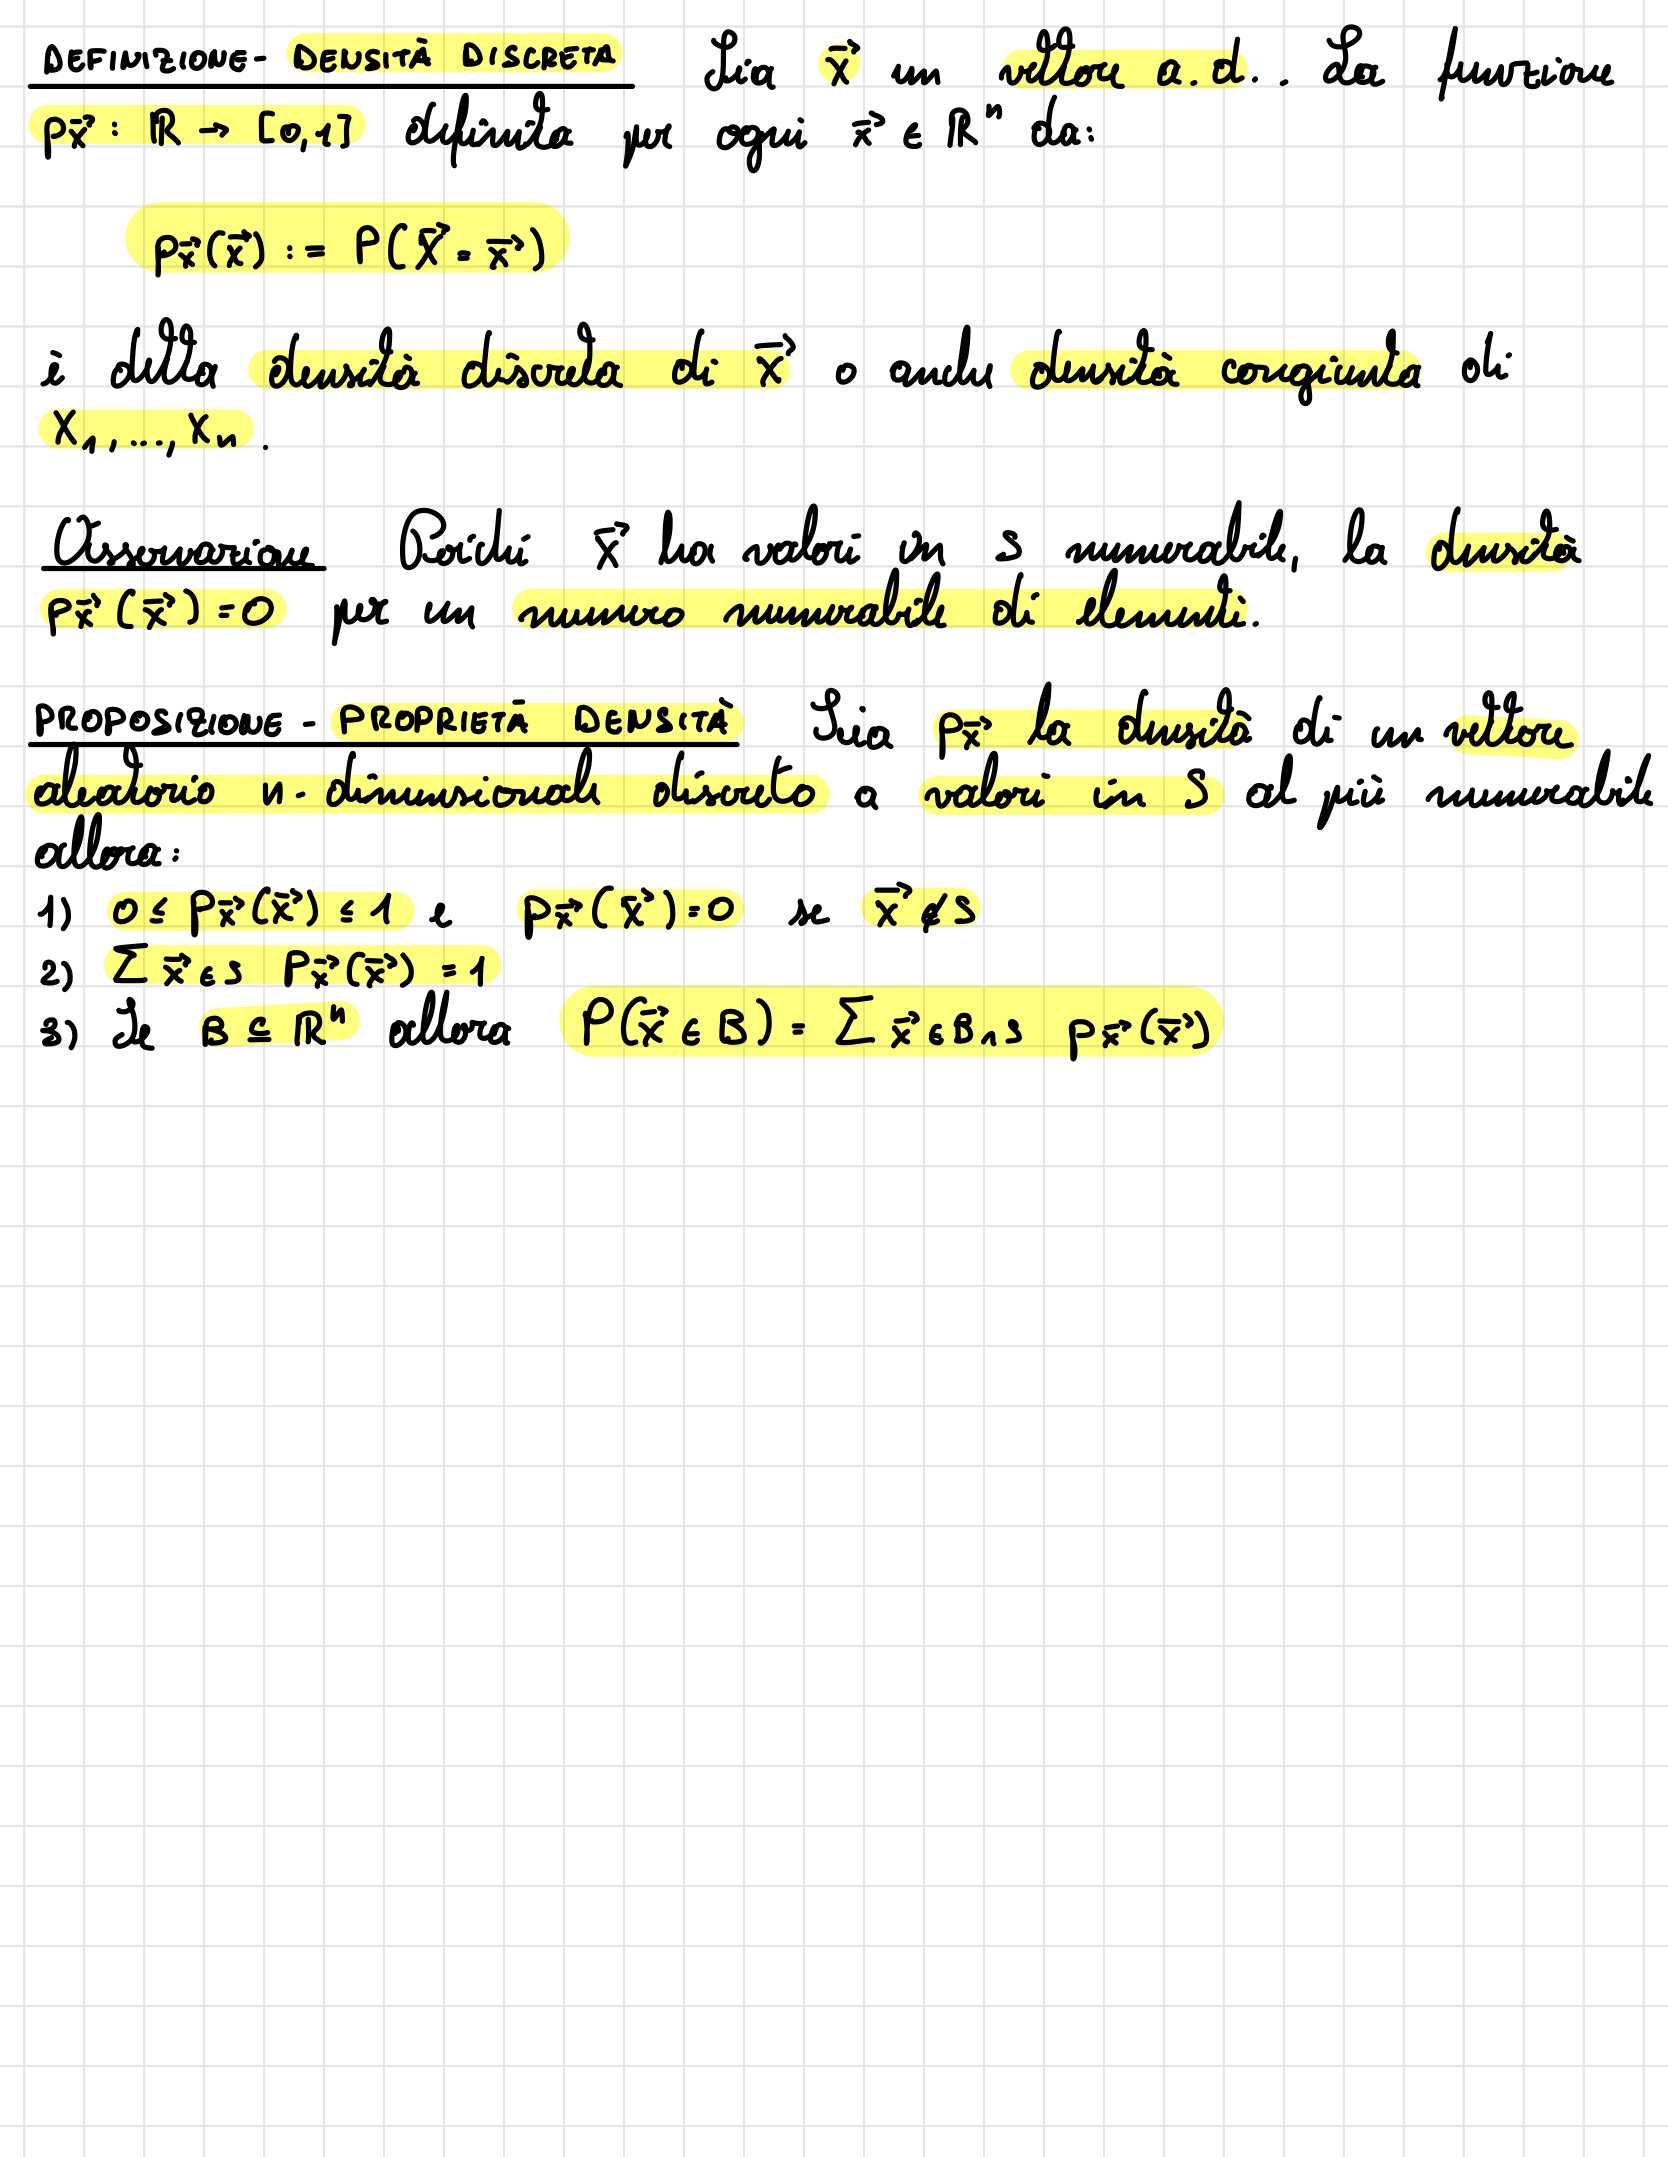 DEFINIZIONE - DENSITÀ DISCRETA Sia x⃗ un vettore a.d.. La funzione
p_x⃗ : ℝ → [0,1] definita per ogni x⃗ ∈ ℝⁿ da:
p_x⃗(x⃗) := P(X⃗ = x⃗)
è detta densità discreta di x⃗ o anche densità congiunta di
X₁,...,Xₙ.
Osservazione Poiché x⃗ ha valori in S numerabile, la densità
p_x⃗(x⃗) = 0 per un numero numerabile di elementi.
PROPOSIZIONE - PROPRIETÀ DENSITÀ Sia p_x⃗ la densità di un vettore
aleatorio n-dimensionale discreto a valori in S al più numerabile
allora:
1) 0 ≤ p_x⃗(x⃗) ≤ 1 e p_x⃗(x⃗) = 0 se x⃗ ∉ S
2) Σ x⃗ ∈ S p_x⃗(x⃗) = 1
3) Se B ⊆ ℝⁿ allora P(x⃗ ∈ B) = Σ x⃗ ∈ B ∩ S p_x⃗(x⃗)